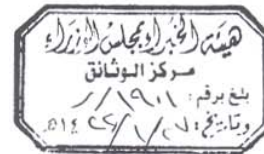 هيئة الخبراء بمجلس الوزراء
مركز الوثائق
بلغ برقم: ١٩٠١ / /
وتاريخ: ٢٧ / ١ / ١٤٢٢هـ